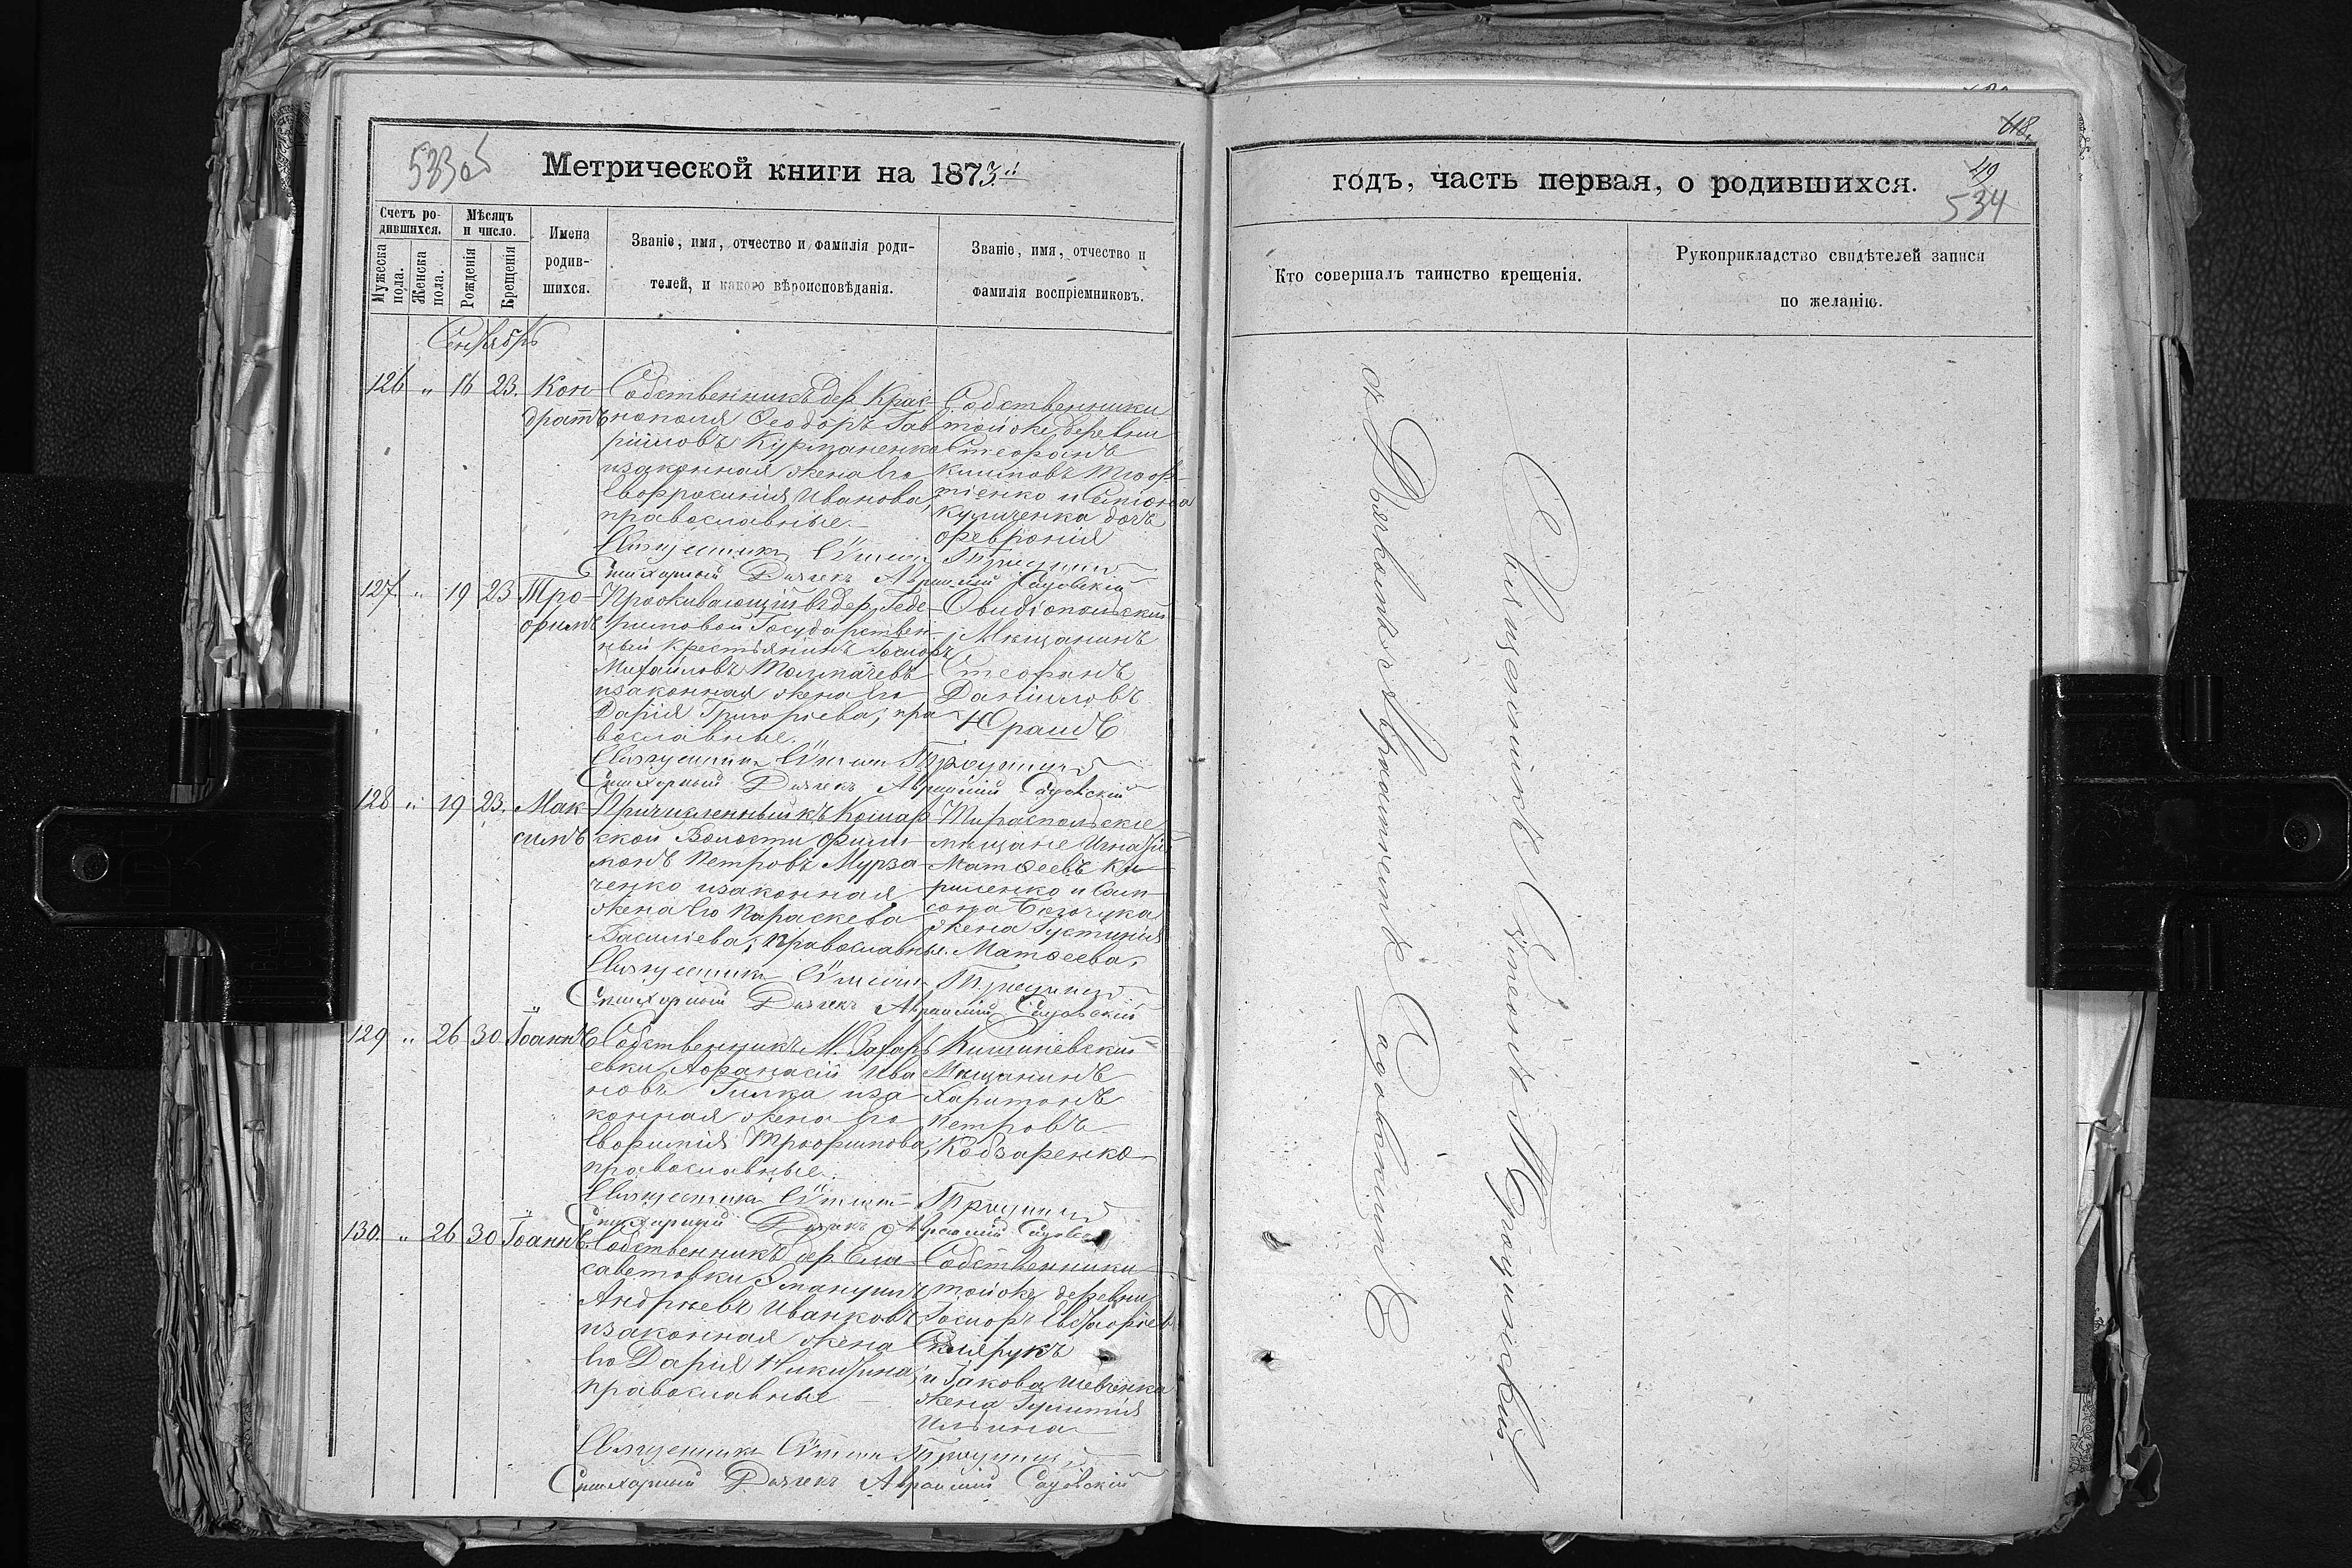 533об
Метрической книги на 1873й
Счетъ ро-
дившихся.
Мужеска пола.
Женска пола.
Мѣсяцъ
и число.
Рожденія
Крещенія
Имена
родив-
шихся.
Званіе, имя, отчество и фамилія роди-
телей, и какого вѣроисповѣданія.
Званіе, имя, отчество и
фамилія воспріемниковъ.
Сентябрь
126 " 16 23. Кон-
дратъ
Собственникъ дер. Крас-
нополя Ѳеодоръ Гав
риловъ Курманенко
и законная жена его
Евфросинія Иванова,
православные.
Собственники
той же деревни
Стефанъ
Климовъ
и
дочь
Февронія
Священникъ Симеонъ
Стихарный Дьячекъ Авраамій Садовскій
127. " 19 23 Тро-
фимъ
Проживающій въ дер.
Государствен-
ный крестьянинъ
Михайловъ Толмачевъ
и законная жена его
Дарія Григорьева, пра
вославные.
Овидіопольскій
Мѣщанинъ
Стефанъ
Даніиловъ
Юрашъ
Священникъ Симеонъ
Стихарный Дьячекъ Авраамій Садовскій
128 " 19 23. Мак-
симъ
Причисленный къ Комар
ской Волости Фили
монъ Петровъ Мурза
ченко и законная
жена его Параскева
Василіева, православные.
Тираспольскіе
мѣщане Игнатій
Матѳеевъ Ки-
риленко и Сам-
сона
жена Густинія
Матѳеева,
Священникъ Симеонъ
Стихарный Дьячекъ Авраамій Садовскій
129 " 26 30 Іоаннъ
Собственникъ М. Захарь
евки Афанасій Ива
новъ Гилка и за
конная жена его
Евфимія Трофимова,
православные.
Кишиневскій
Мѣщанинъ
Харитонъ
Петровъ
Кобзаренко
Священникъ Симеонъ
Стихарный Дьячекъ Авраамій Садовскій
130. " 26 30 Іоаннъ.
Собственникъ дер. Ела-
саветовки Эмануилъ
Андреевъ Иванковъ
и законная жена
его Дарія Никитина,
православные
Собственники
той же деревни
Склярукъ
и Іакова Шевченка
жена
Ильина
Священникъ Симеонъ
Стихарный Дьячекъ Авраамій Садовскій
618.
годъ, часть первая, о родившихся.
49
534
Кто совершалъ таинство крещенія.
Рукоприкладство свидѣтелей записи
по желанію.
Священникъ Симеонъ
съ Дьячкомъ Авраамiемъ Садовскимъ